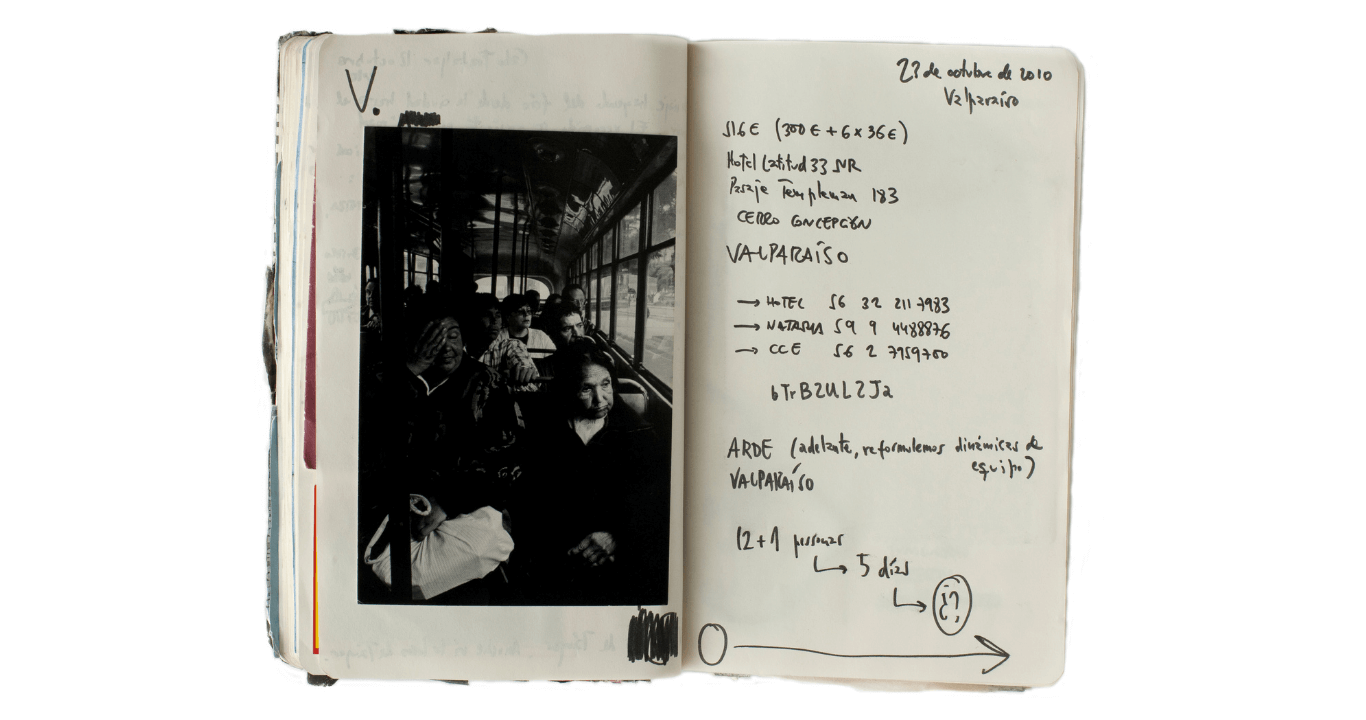 V.
23 de octubre de 2010
Valparaíso
516 € (300 € + 6 x 36 €)
Hotel Latitud 33 SUR
Pasaje Templeman 183
CERRO CONCEPCIÓN
VALPARAÍSO
→ HOTEL 56 32 2117983
→ NATALIA 59 9 4488876
→ CCE 56 2 7959700
6TrB2UL2J2
ARDE (adelante, reformulemos dinámicas de
equipo)
VALPARAÍSO
12+1 personas
↳ 5 días
↳ ¿?
O →